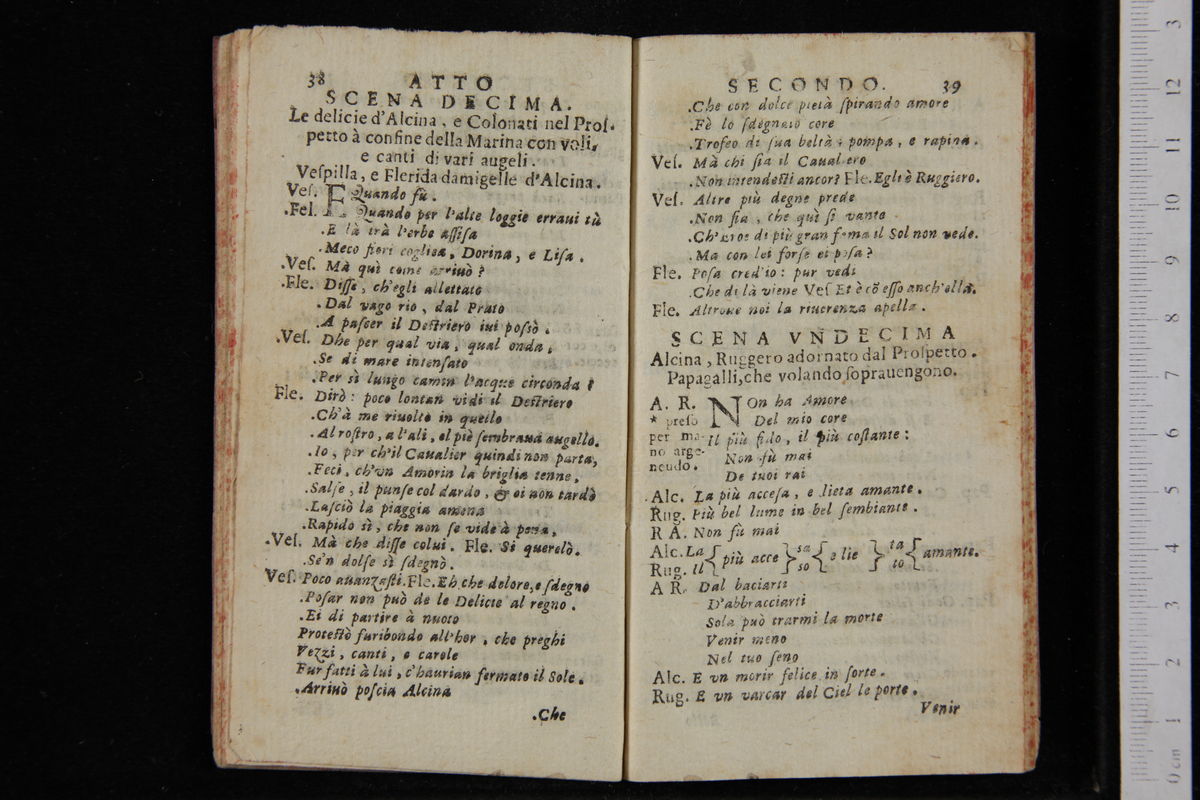 38 ATTO
SCENA DECIMA.
Le delicie d'Alcina, e Colonati nel Proſ-
petto à confine della Marina con voli,
e canti di vari augeli.
Veſpilla, e Flerida damigelle d'Alcina.
Veſ. E Quando fù.
Fel. Quando per l'alte loggie erraui tù
E là trà l'erbe aſſiſa
Meco fiori coglica, Dorina, e Liſa.
Veſ. Mà quì come arriuò?
Fle. Diſſe, ch'egli allettato
Dal vago rio, dal Prato
A paſcer il Deſtriero iui poſsò.
Veſ. Dhe per qual via, qual onda,
Se di mare intenſato
Per sì lungo camin l'acque circonda?
Fle. Dirò: poco lontan vidi il Deſtriero
Ch'à me riuolto in quello
Al roſtro, a l'ali, al piè ſembraua augello.
Io, per ch'il Caualier quindi non parta,
Feci, ch'vn Amorin la briglia tenne,
Salſe, il punſe col dardo, & ei non tardò
Laſciò la piaggia amena
Rapido sì, che non ſe vide à pena,
Veſ. Mà che diſſe colui. Fle. Si querelò.
Se'n dolſe sì ſdegnò.
Veſ. Poco auanzaſti. Fle. Eh che dolore, e ſdegno
Poſar non può de le Delicie al regno.
Ei di partire à nuoto
Proteſtò furibondo all'hor, che preghi
Vezzi, canti, e carole
Fur fatti à lui, c'haurian fermato il Sole.
Arriuò poſcia Alcina
Che
SECONDO. 39
Che con dolce pietà ſpirando amore
Fè lo ſdegnato core
Trofeo di ſua beltà: pompa, e rapina.
Veſ. Mà chi ſia il Caualiero
Non intendeſti ancor? Fle. Egli è Ruggiero.
Veſ. Altre più degne prede
Non ſia, che quì ſi vante
Ch'Eroe di più gran fama il Sol non vede.
Ma con lei forſe ei poſa?
Fle. Poſa cred'io: pur vedi
Che di là viene Veſ Et è cõ eſſo anch'ella.
Fle. Altroue noi la riuerenza apella.
SCENA VNDECIMA
Alcina, Ruggero adornato dal Proſpetto.
Papagalli, che volando ſoprauengono.
A. R. NOn ha Amore
* preſo Del mio core
per ma- Il più fido, il più coſtante:
no arge- Non fù mai
neudo. De tuoi rai
Alc. La più acceſa, e lieta amante.
Rug. Più bel lume in bel ſembiante.
R A. Non fù mai
Alc. La { più acce } sa { e lie } ta { amante.
Rug. Il { } so { } to {
A R. Dal baciarti
D'abbracciarti
Sola può trarmi la morte
Venir meno
Nel tuo ſeno
Alc. E vn morir felice in ſorte.
Rug. E vn varcar del Ciel le porte.
Venir
0 cm 1 2 3 4 5 6 7 8 9 10 11 12 3